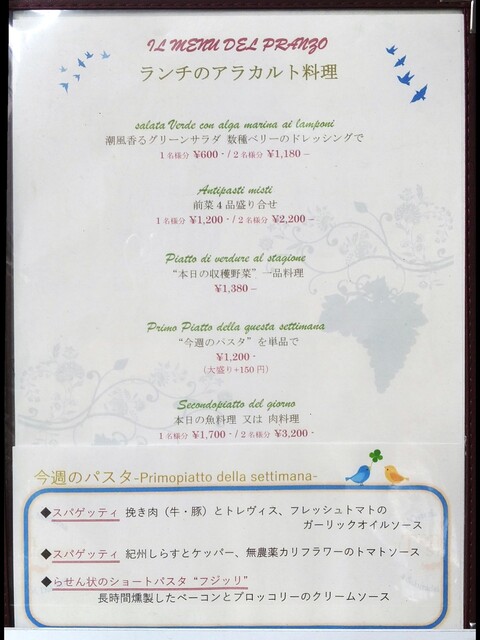 IL MENU DEL PRANZO
ランチのアラカルト料理
salata Verde con alga marina ai lamponi
潮風香るグリーンサラダ 数種ベリーのドレッシングで
1名様分 ¥600 - / 2名様分 ¥1,180 –
Antipasti misti
前菜4品盛り合せ
1名様分 ¥1,200 - / 2名様分 ¥2,200 –
Piatto di verdure al stagione
“本日の収穫野菜” 一品料理
¥1,380 –
Primo Piatto della questa settimana
“今週のパスタ” を単品で
¥1,200 -
(大盛り+150円)
Secondopiatto del giorno
本日の魚料理 又は 肉料理
1名様分 ¥1,700 - / 2名様分 ¥3,200 -
今週のパスタ-Primopiatto della settimana-
◆スパゲッティ 挽き肉（牛・豚）とトレヴィス、フレッシュトマトの
ガーリックオイルソース
◆スパゲッティ 紀州しらすとケッパー、無農薬カリフラワーのトマトソース
◆らせん状のショートパスタ “フジッリ”
長時間燻製したベーコンとブロッコリーのクリームソース